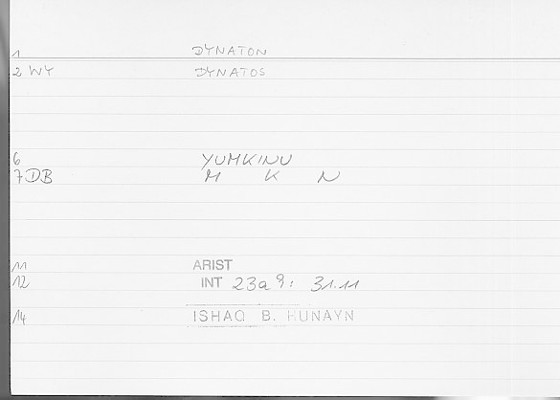 1 DYNATON
2 WY DYNATOS
6 YUMKINU
7 DB M K N
11 ARIST
12 INT 23a9: 31.11
14 ISHAQ B. HUNAYN